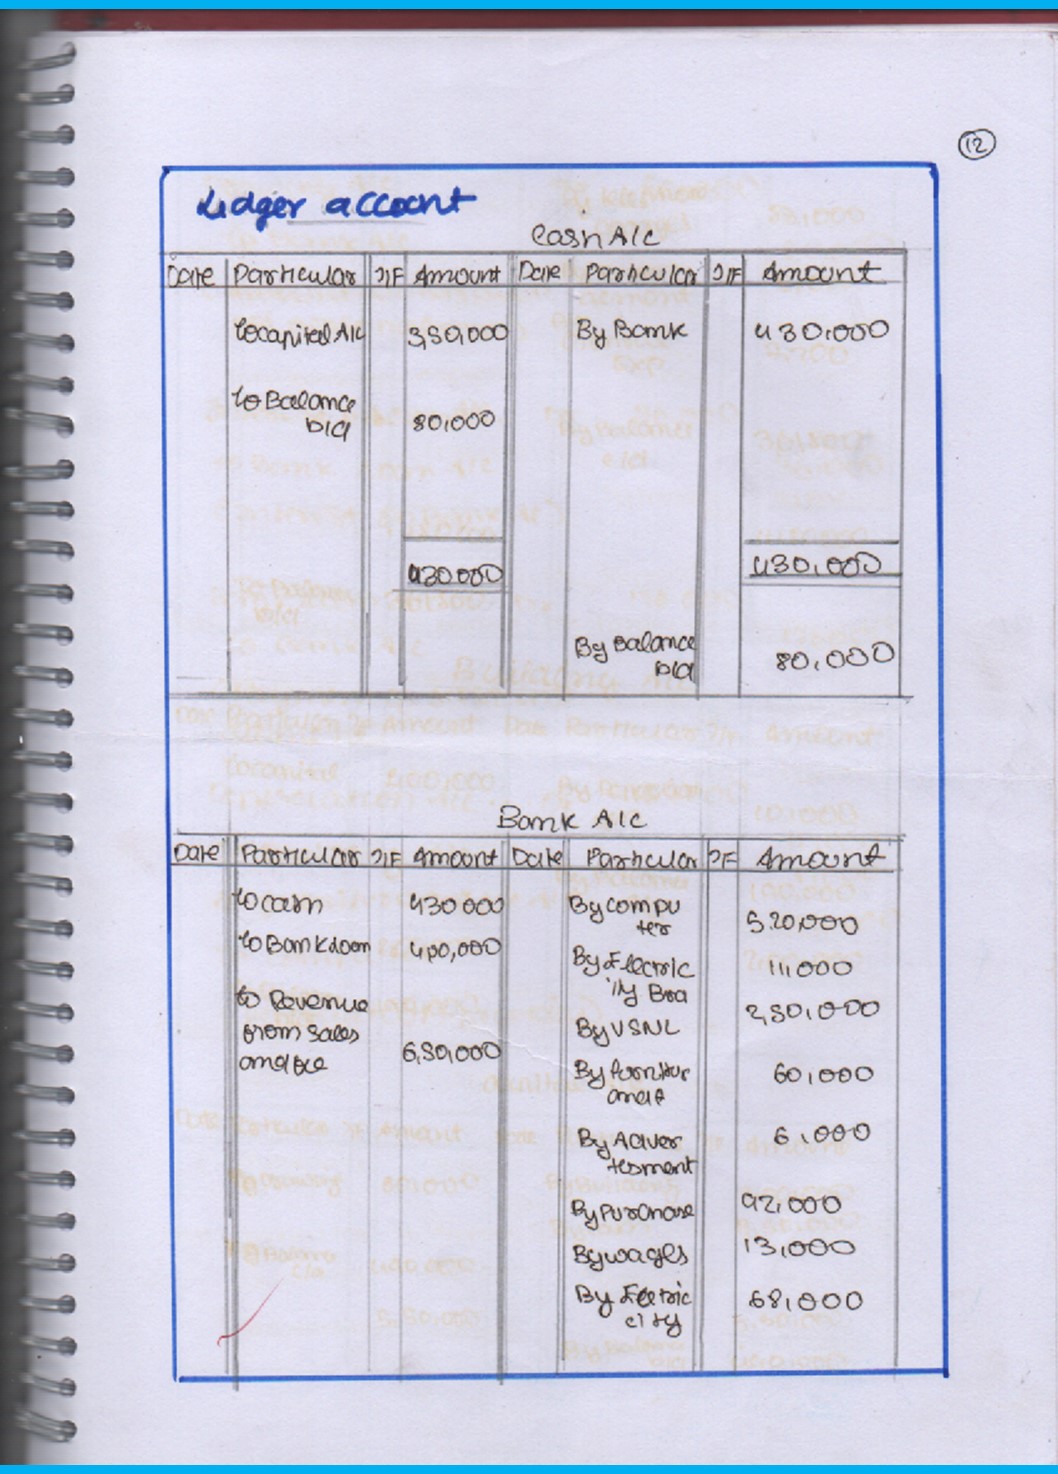 12
Ledger account
Cash A/c
Date Particular J/F Amount Date Particular J/F Amount
To capital A/c 3,50,000 By Bank 430,000
To Balance
b/d 80,000
430,000 430,000
By Balance
b/d 80,000
Bank A/c
Date Particular J/F Amount Date Particular J/F Amount
To cash 430000 By compu
ter 5,20,000
To Bank loan 400,000 By Electric
ity Boa 11,000
To Revenue
from sales 2,50,000
By VSNL
6,50,000
By furnitur 60,000
By Adver
tesment 6,000
By purchase 92,000
By wages 13,000
By Eletric
city 68,000